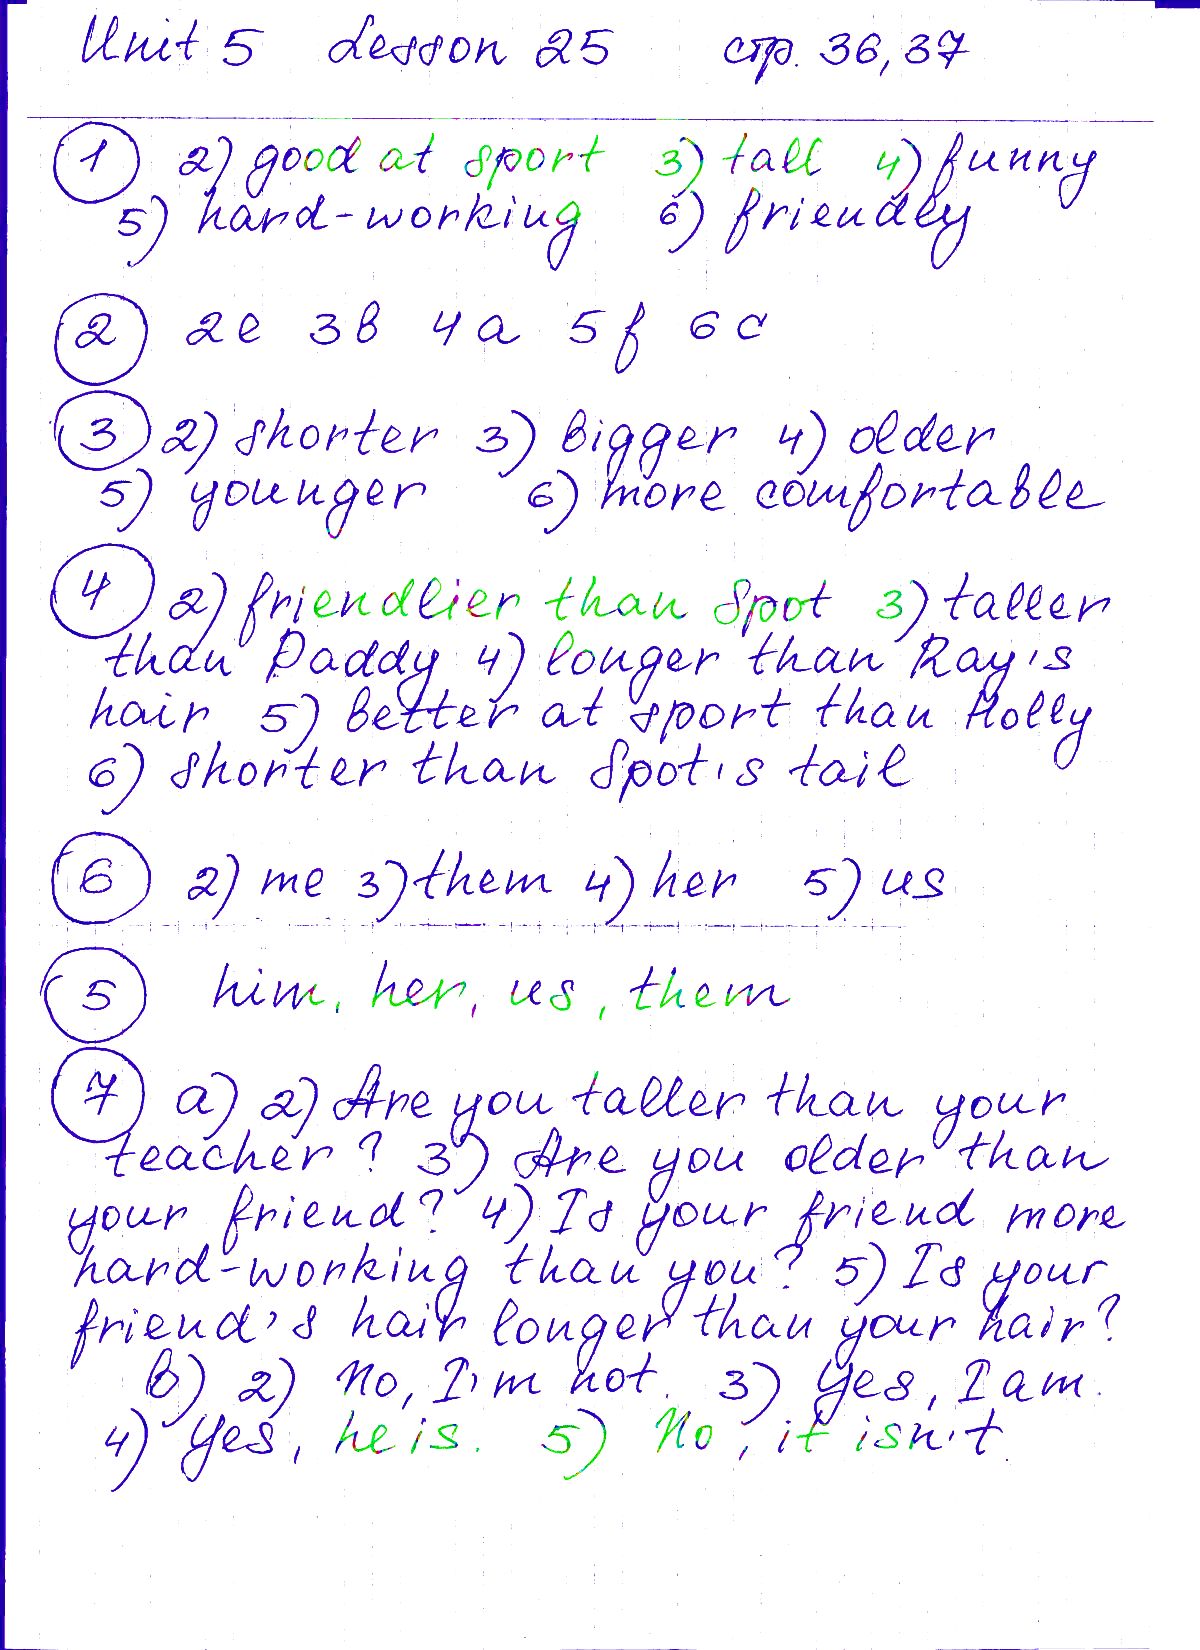 Unit 5 Lesson 25 стр. 36, 37
1 2) good at sport 3) tall 4) funny
5) hard-working 6) friendly
2 2e 3b 4a 5f 6c
3 2) shorter 3) bigger 4) older
5) younger 6) more comfortable
4 2) friendlier than Spot 3) taller
than Daddy 4) longer than Ray's
hair 5) better at sport than Holly
6) shorter than Spot's tail
6 2) me 3) them 4) her 5) us
5 him, her, us, them
7 a) 2) Are you taller than your
teacher? 3) Are you older than
your friend? 4) Is your friend more
hard-working than you? 5) Is your
friend's hair longer than your hair?
b) 2) No, I'm not. 3) Yes, I am.
4) Yes, he is. 5) No, it isn't